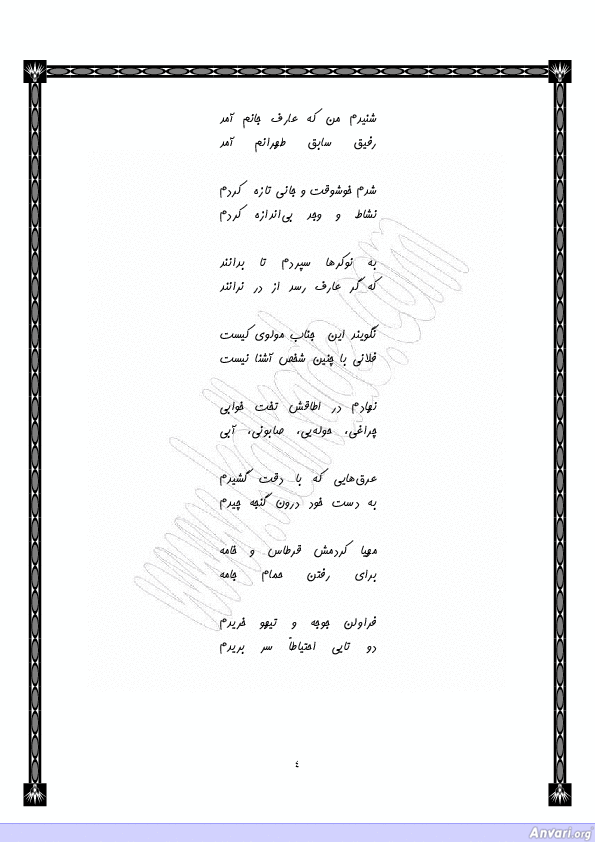 شنیدم من که عارف جانم آمد
رفیق سابق طهرانم آمد
شدم خوشوقت و جانی تازه کردم
نشاط و وجد بی‌اندازه کردم
به نوکرها سپردم تا بدانند
که گر عارف رسد از در نرانند
نگویند این جناب مولوی کیست
فلانی با چنین شخص آشنا نیست
نهادم در اطاقش تخت خوابی
چراغی، حوله‌یی، صابونی، آبی
عرق‌هایی که با دقت کشیدم
به دست خود درون گنجه چیدم
مهیا کردمش قرطاس و خامه
برای رفتن حمام جامه
فراوان جوجه و تیهو خریدم
دو تایی احتیاطاً سر بریدم
٤
Anvari.org